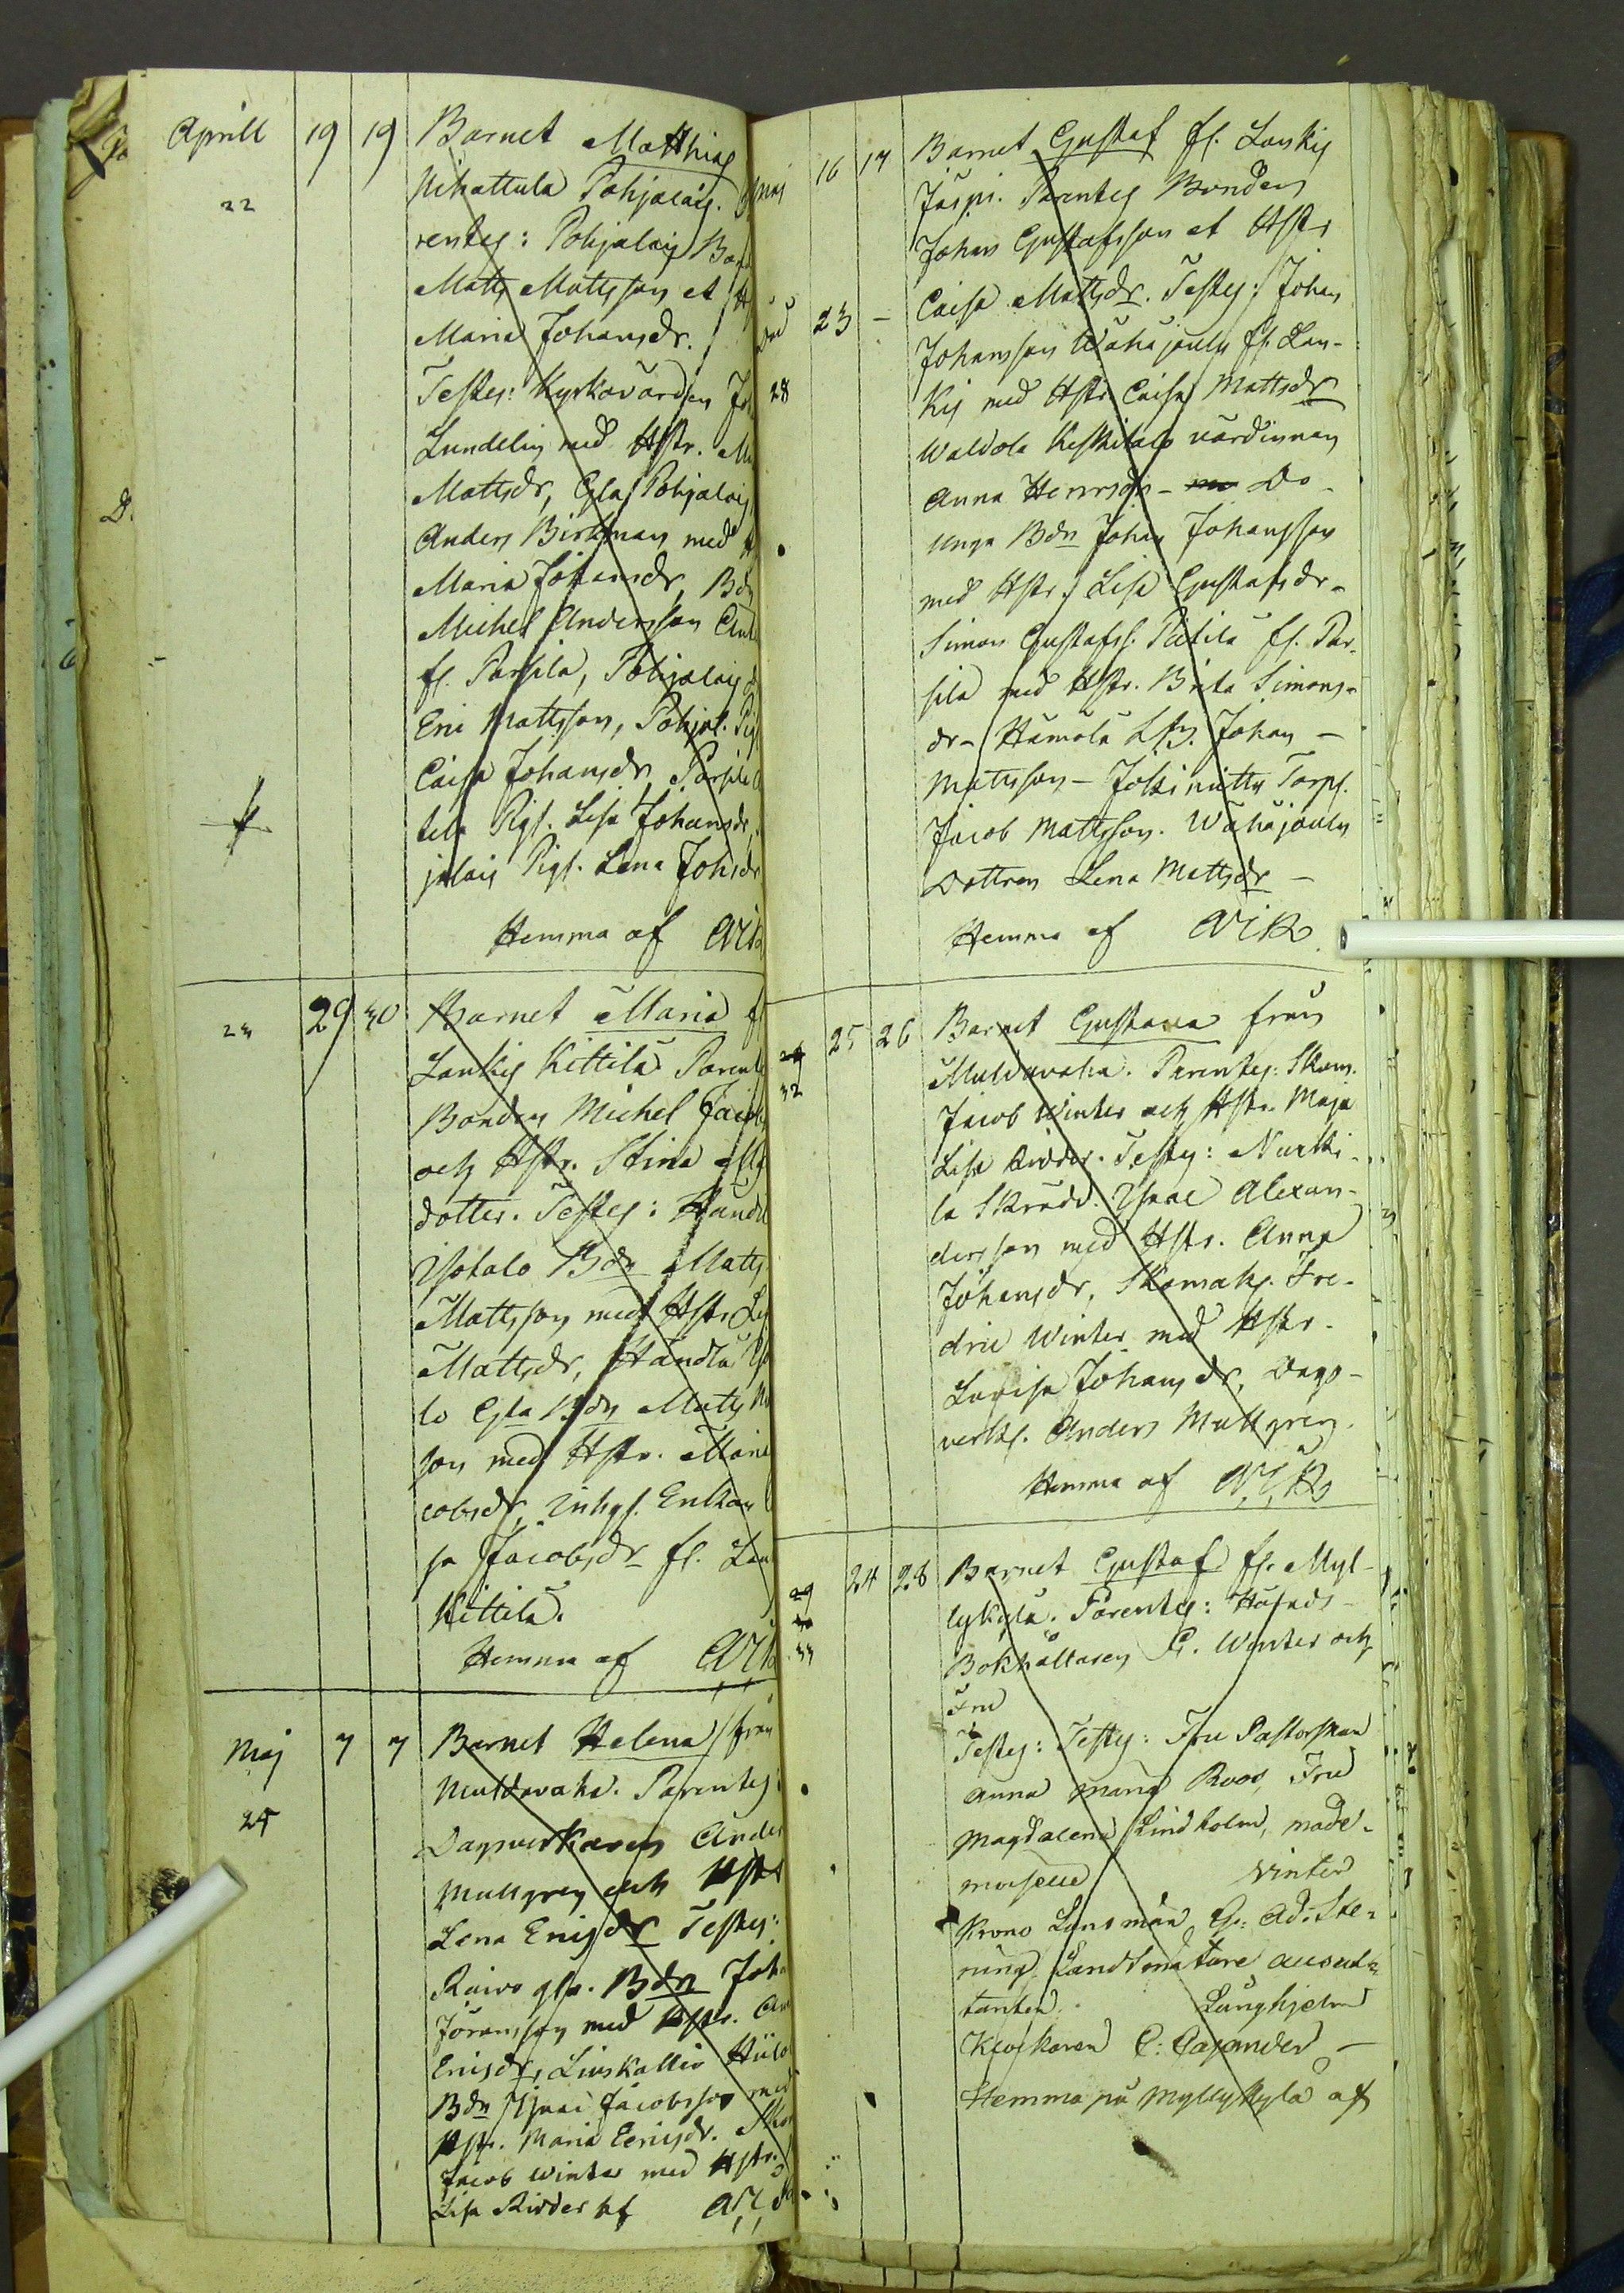 Aprill 19 19 Barnet Matthias
22 Nihattula Pohjalais.
rentes: Pohjalais
Matts Mattsson et
Maria Johansdr.
Testes: Kyrkovärden
Lundelin med Hstr.
Mattsdr, Gla Pohjalais
Anders Birkman med
Maria Johansdr, Bdn
Michel Andersson
fl. Parsila, Pohjalais
Eric Mattsson, Pohjal.
Caisa Johansdr, Parsila
tela Pigl. Lisa Johansdr,
jalais Pigl. Lena Johsdr
Hemma af
23 29 30 Barnet Maria
Lankis Kittilä Parent
Bonden Michel Jacob
och Hstr. Stina
dotter. Testes:
Ysotalo Bdn Matts
Mattsson med Hstr
Mattsdr,
lo Gla Bdn Matts
son med Hstr. Maria
cobsdr, Inhys. Enkan
sa Jacobsdr fl. Lan
Kittilä.
Hemma af
Maj 7 7 Barnet Helena från
Muldavaha. Parentes
25 Dagsverkaren Ander
Mullgren och Hstr
Lena Ericsdr Testes:
Raivo gla. Bdn Joh
Jöransson med Hstr.
Ericsdr, Liuskallio
Bdn Isaac Jacobsson med
Hstr. Maria Ericsdr.
Jacob Winter med Hstr.
Lisa Ridder af
16 17 Barnet Gustaf fl. Lankis
Jäspi. Parentes Bonden
Johan Gustafsson et Hstr
23 – Caisa Mattsdr. Testes: Johan
Johansson Wähäjouly fl. Lan-
28 kis med Hstr Caisa Mattsdr
Waldola Keskitalo värdinnan
Anna Henrsdr – Do –
unga Bdn Johan Johansson
med Hstr. Lisa Gustafsdr –
Simon Gustafss. Pätilä fl. Par-
sila med Hstr. Brita Simons-
dr – Hämälä Johan –
Mattsson – Jokinitty Torp.
Jacob Mattsson. Wähäjouly
Dottren Lena Mattsdr –
Hemma af
25 26 Barnet Gustava från
32 Muldavaha. Parentes: Skom.
Jacob Winter och Hstr. Maja
Lisa Ridder. Testes: Nurkki-
la Skrädd. Isaac Alexan-
dersson med Hstr. Anna
Johansdr, Skomak. Fre-
dric Winter med Hstr.
Lovisa Johansdr, Dags-
verk. Anders Mullgren.
Hemma af
24 28 Barnet Gustaf fl. Myl-
lykylä. Parentes: Häfads-
33 Bokhållaren G. Winter och
Fru
Testes: Testes: Fru Pastorskan
Anna Maria Roos, Fru
Magdalena Lindholm, made-
moiselle Winter
Krono Länsman G: Ad: Ste-
ning. Landtmätare auscul-
tanten Lunghjelm
Klockaren C: Cajander –
Hemma på Myllykylä af